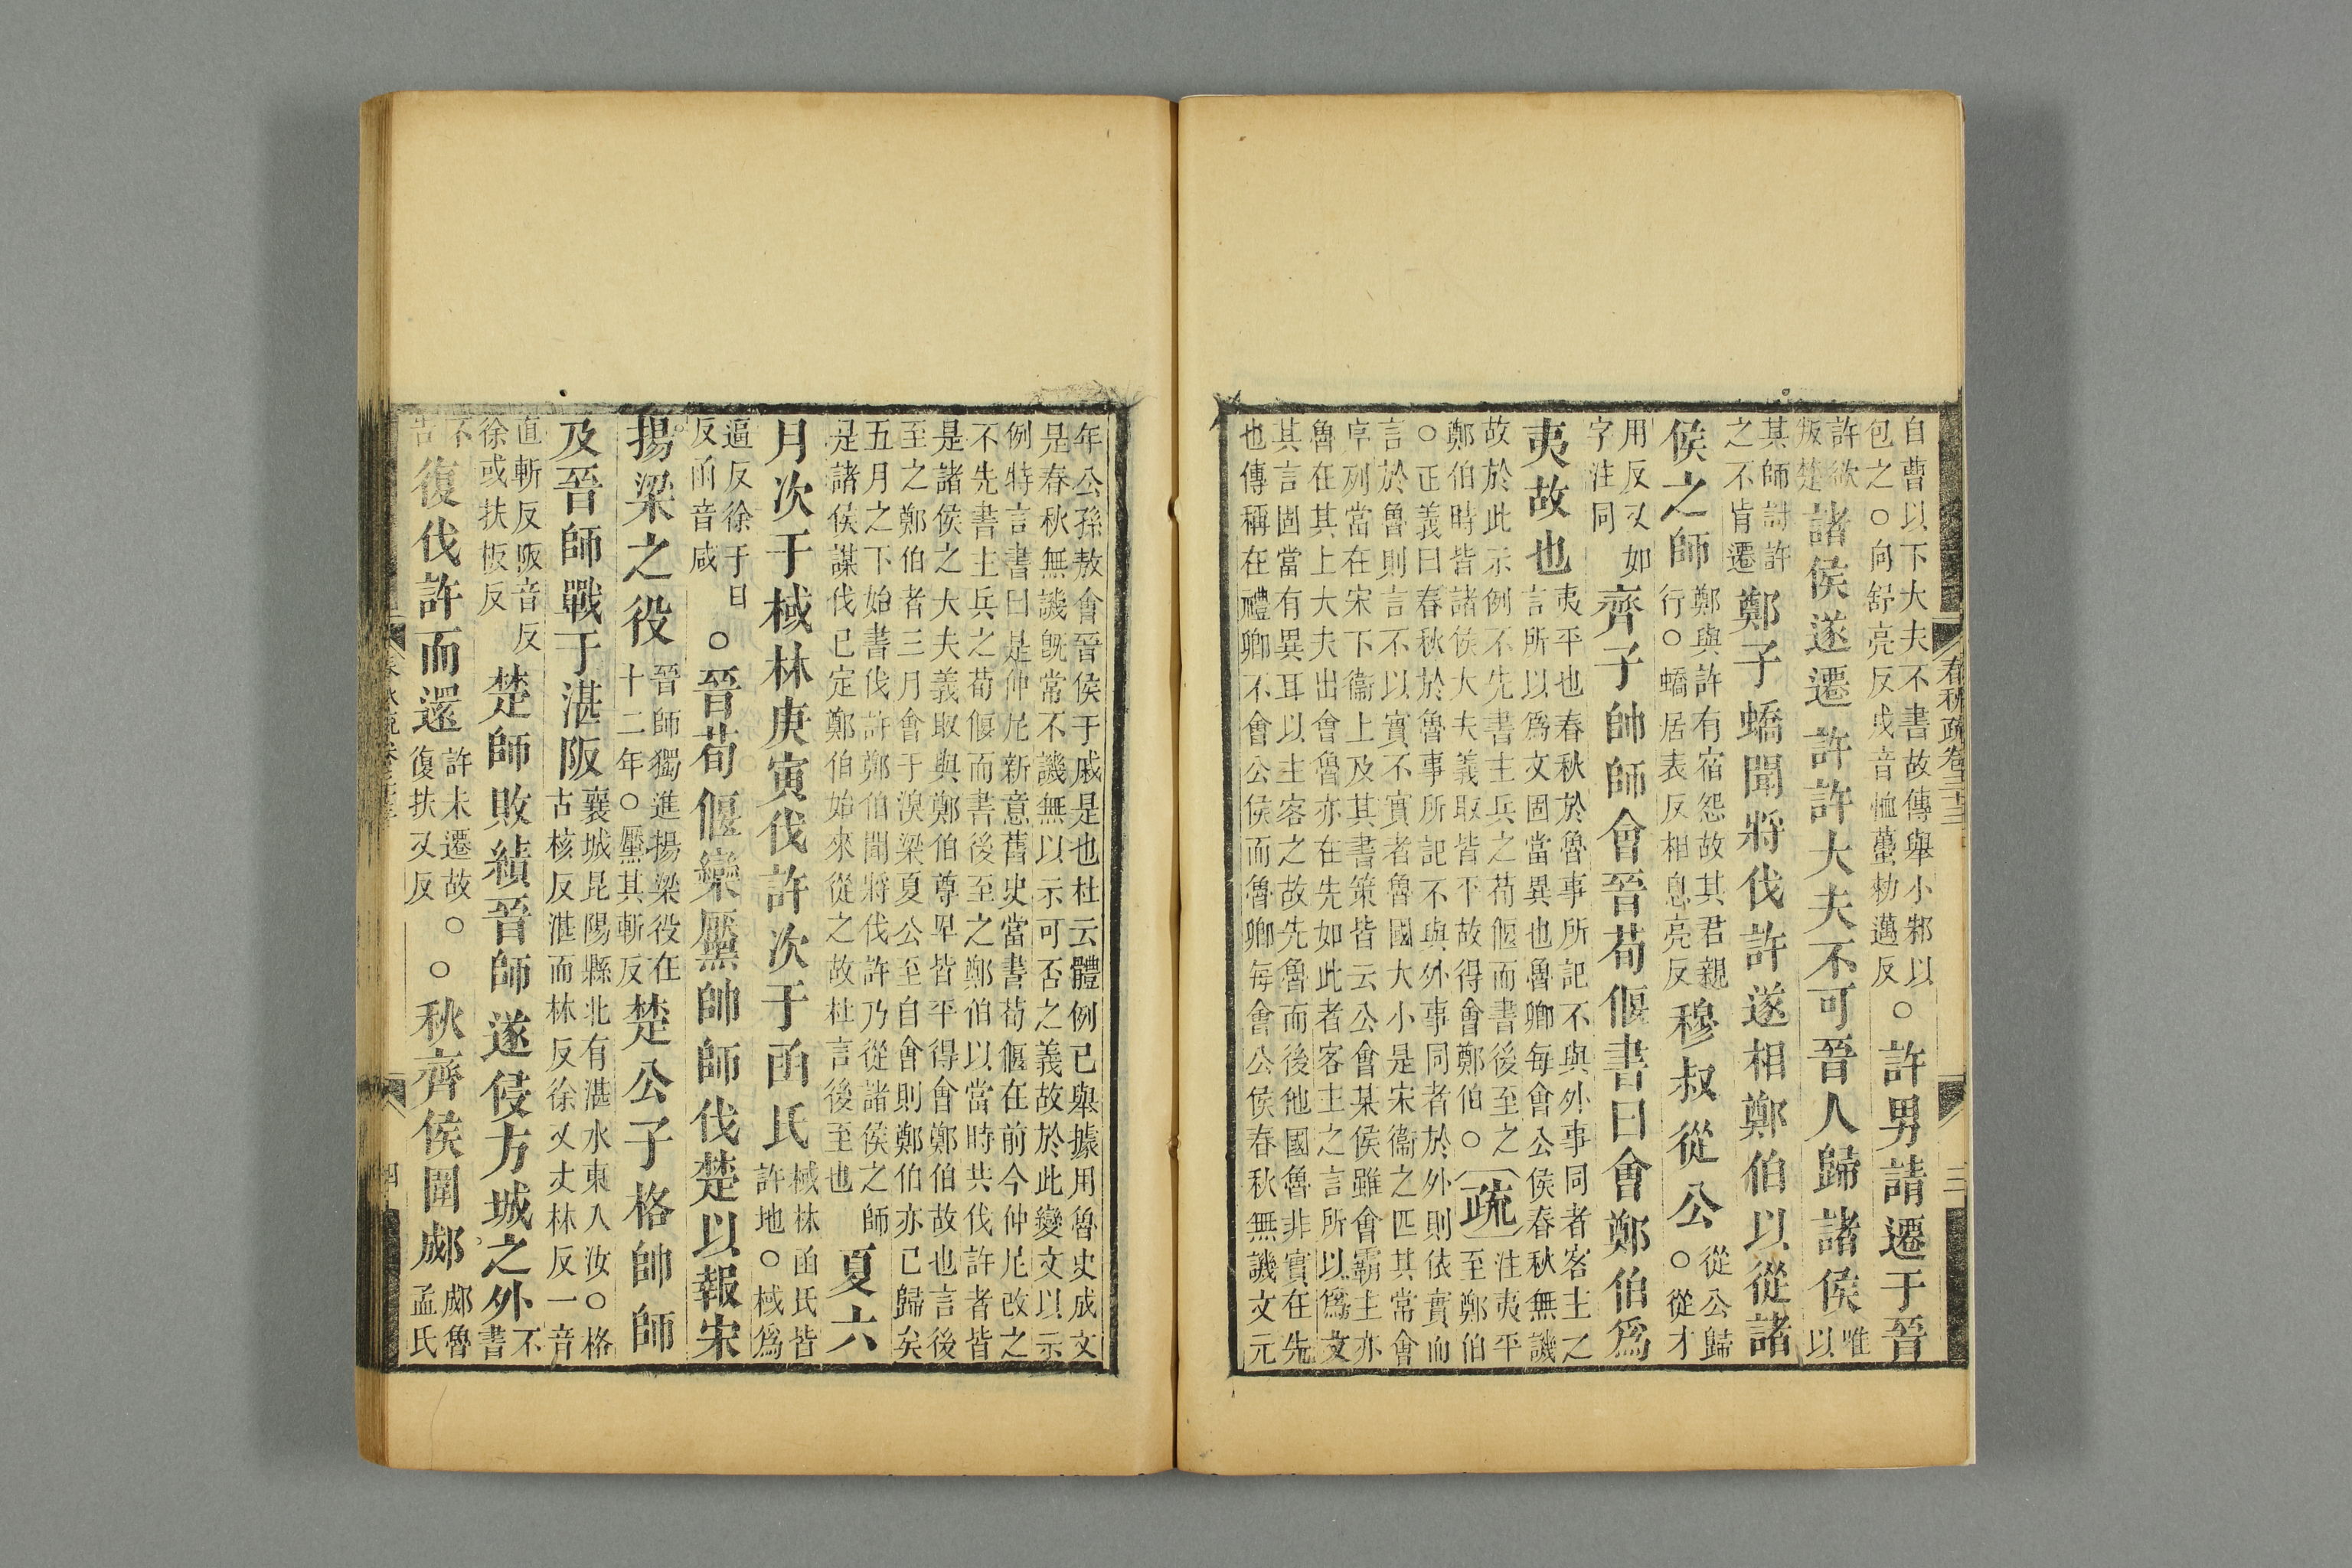 自曹以下大夫不書故傳舉小邾以
包之○向舒亮反戌音恤蠆勑邁反
○許男請遷于晉
許欲
叛楚
諸侯遂遷許許大夫不可晉人歸諸侯
唯以
其師討許
之不肯遷
鄭子蟜聞將伐許遂相鄭伯以從諸
侯之師
鄭與許有宿怨故其君親
行○蟜居表反相息亮反
穆叔從公
從公歸
○從才
用反又如
字注同
齊子帥師會晉荀偃書曰會鄭伯爲
夷故也
夷平也春秋於魯事所記不與外事同者客主之
言所以爲文固當異也魯卿每會公侯春秋無譏
故於此示例不先書主兵之荀偃而書後至之
鄭伯時皆諸侯大夫義取皆平故得會鄭伯○
疏
注夷平
至鄭伯
○正義曰春秋於魯事所記不與外事同者於外則依實而
言於魯則言不以實不實者魯國大小是宋衞之匹其常會
序列當在宋下衞上及其書策皆云公會某侯雖會霸主亦
魯在其上大夫出會魯亦在先如此者客主之言所以爲文
其言固當有異耳以主客之故先魯而後他國魯非實在先
也傳稱在禮卿不會公侯而魯卿每會公侯春秋無譏文元
春秋疏卷三十三
三
年公孫敖會晉侯于戚是也杜云體例已舉據用魯史成文
是春秋無譏既常不譏無以示可否之義故於此變文以示
例特言書曰是仲尼新意舊史當書荀偃在前今仲尼改之
不先書主兵之荀偃而書後至之鄭伯以當時共伐許者皆
是諸侯之大夫義取與鄭伯尊卑皆平得會鄭伯故也言後
至之鄭伯者三月會于湨梁夏公至自會則鄭伯亦已歸矣
五月之下始書伐許鄭伯聞將伐許乃從諸侯之師
是諸侯謀伐已定鄭伯始來從之故杜言後至也
夏六
月次于棫林庚寅伐許次于函氏
棫林函氏皆
許地○棫爲
逼反徐于目
反函音咸
○晉荀偃欒黶帥師伐楚以報宋
揚梁之役
晉師獨進揚梁役在
十二年○黶其斬反
楚公子格帥師
及晉師戰于湛阪
襄城昆陽縣北有湛水東入汝○格
古核反湛而林反徐又丈林反一音
直斬反阪音反
徐或扶板反
楚師敗績晉師遂侵方城之外
不書
不告
復伐許而還
許未遷故○
復扶又反
○秋齊侯圍郕
郕魯
孟氏
四